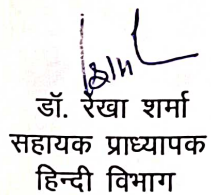 डॉ. रेखा शर्मा
सहायक प्राध्यापक
हिन्दी विभाग